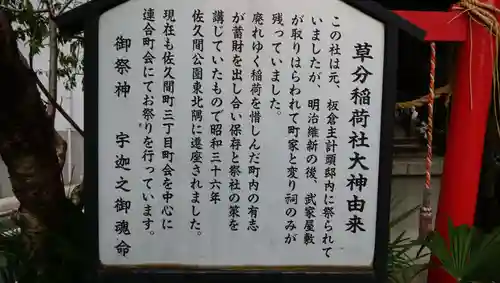 草分稲荷社大神由来
この社は元、板倉主計頭邸内に祭られて
いましたが、明治維新の後、武家屋敷
が取りはらわれて町家と変り祠のみが
残っていました。
廃れゆく稲荷を惜しんだ町内の有志
が蓄財を出し合い保存と祭社の策を
講じていましたので昭和三十六年
佐久間公園東北隅に遷座されました。
現在も佐久間町三丁目町会を中心に
連合町会にてお祭りを行っています。
御祭神 宇迦之御魂命